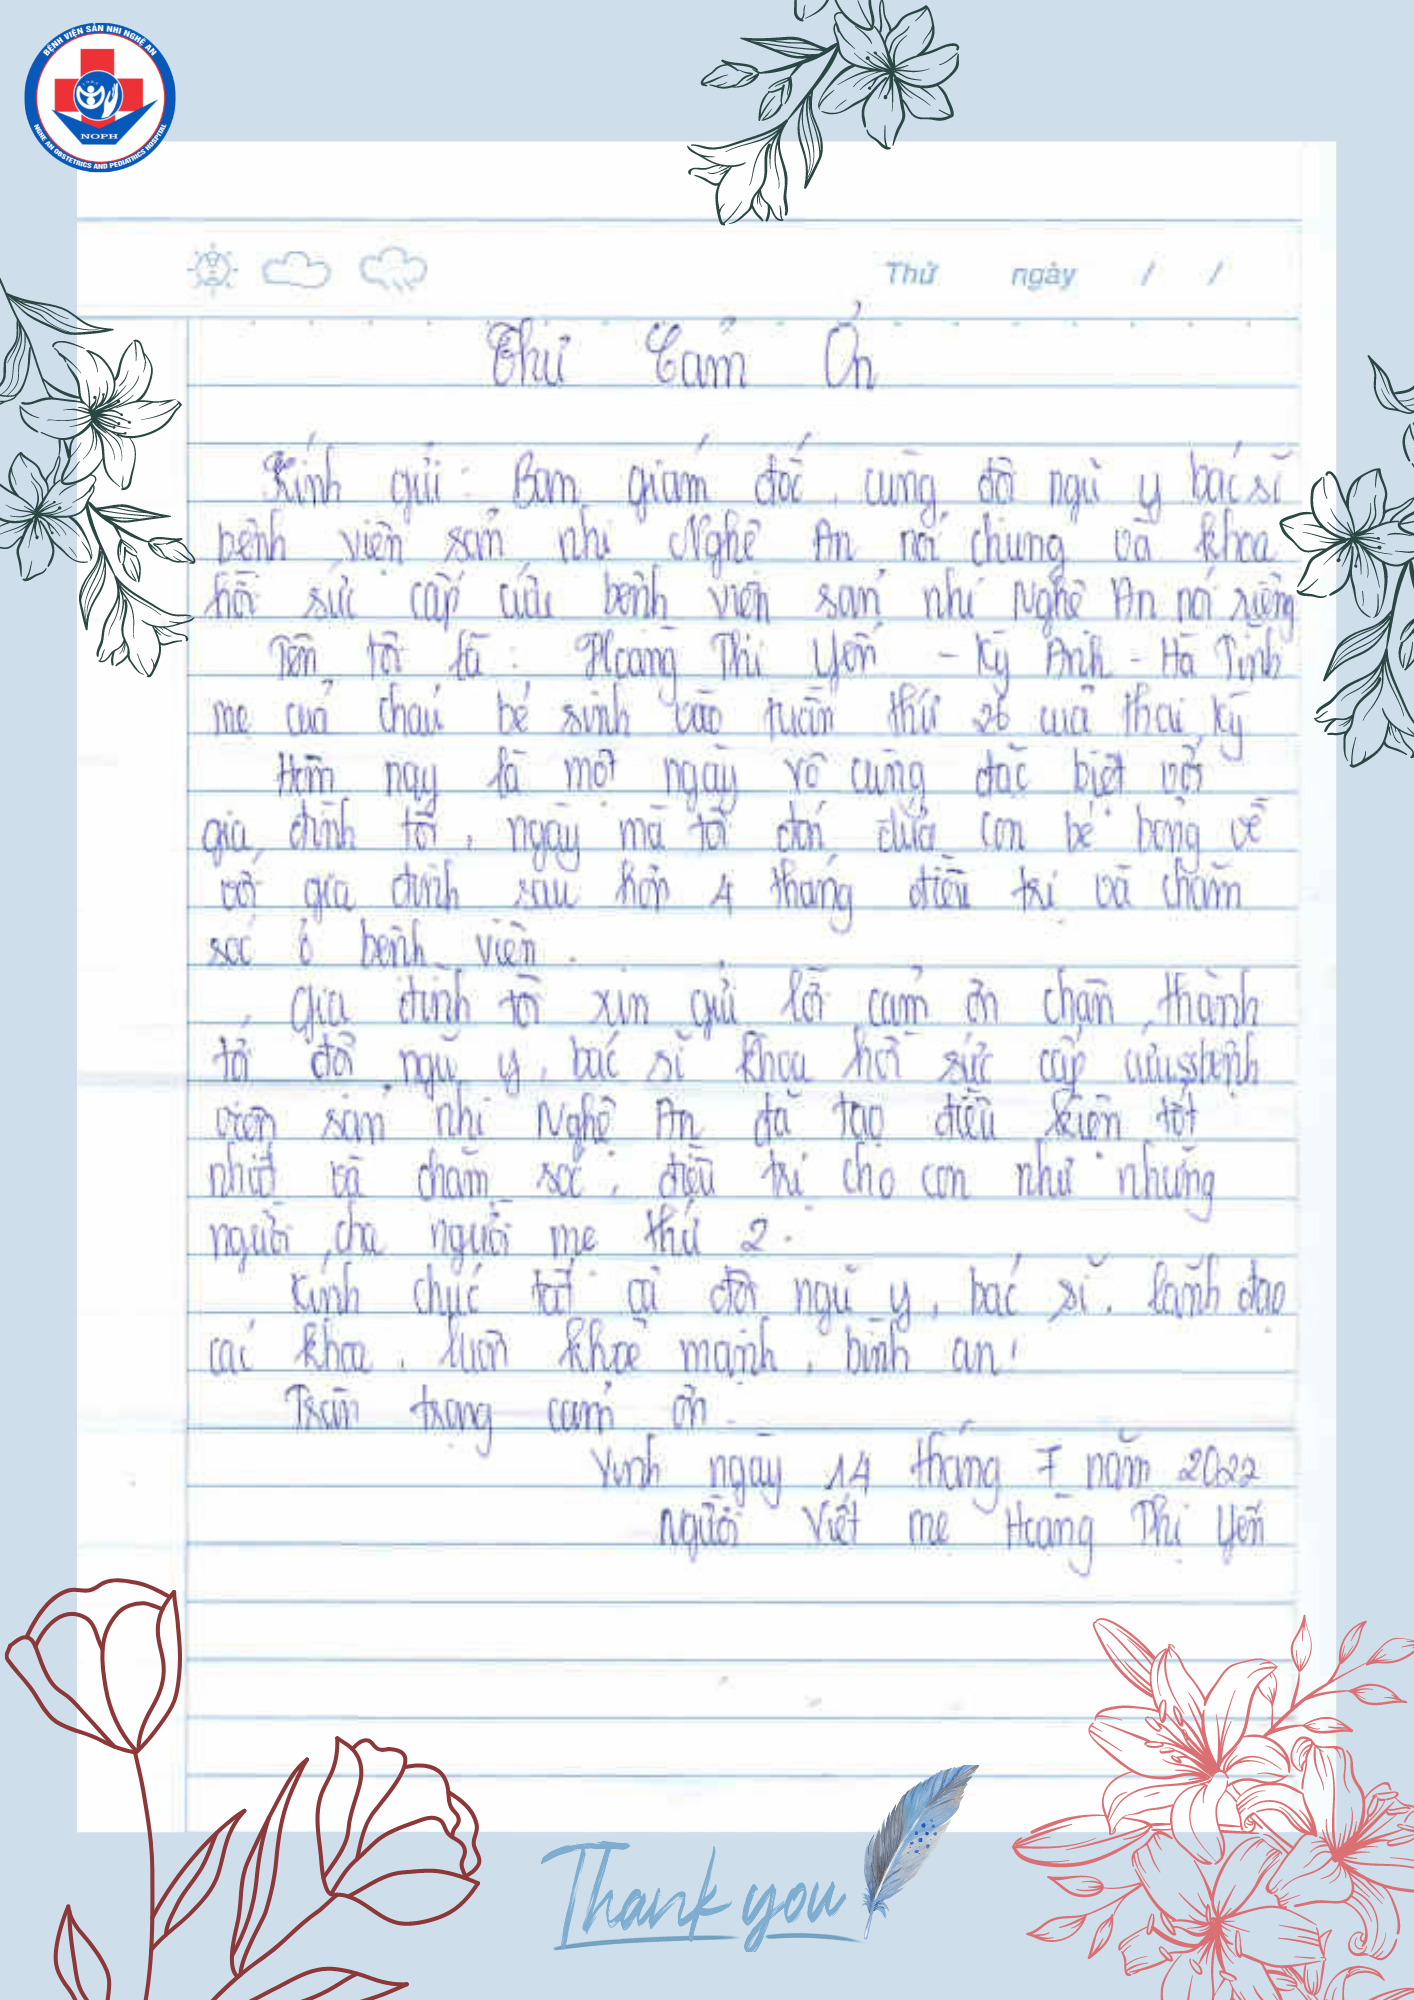 BỆNH VIỆN SẢN NHI NGHỆ AN
NOPH
NGHE AN OBSTETRICS AND PEDIATRICS HOSPITAL
Thứ ngày / /
Thư Cảm Ơn
Kính gửi : Ban giám đốc, cùng đội ngũ y bác sĩ
bệnh viện sản nhi Nghệ An nói chung và khoa
hồi sức cấp cứu bệnh viện sản nhi Nghệ An nói riêng
Tên tôi là : Hoàng Thị Yến - Kỳ Anh - Hà Tĩnh
mẹ của cháu bé sinh vào tuần thứ 26 của thai kỳ
Hôm nay là một ngày vô cùng đặc biệt với
gia đình tôi, ngày mà tôi đón đứa con bé bỏng về
với gia đình sau hơn 4 tháng điều trị và chăm
sóc ở bệnh viện .
Gia đình tôi xin gửi lời cảm ơn chân thành
tới đội ngũ y, bác sĩ khoa hồi sức cấp cứu bệnh
viện sản nhi Nghệ An đã tạo điều kiện tốt
nhất và chăm sóc, điều trị cho con như những
người cha người mẹ thứ 2.
Kính chúc tất cả đội ngũ y, bác sĩ, lãnh đạo
các khoa, luôn khỏe mạnh, bình an!
Trân trọng cảm ơn.
Vinh ngày 14 tháng 7 năm 2022
Người Viết mẹ Hoàng Thị Yến
Thank you